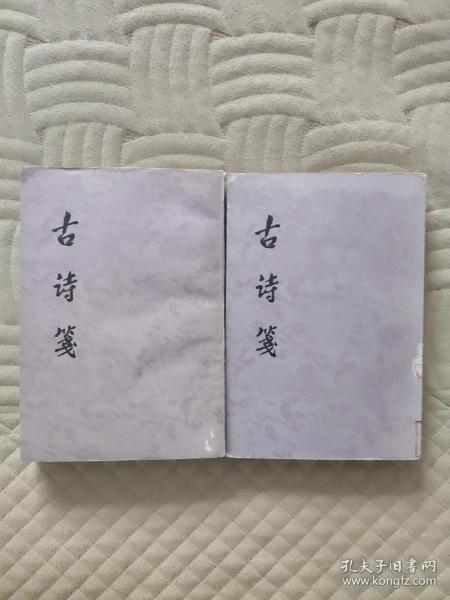 古诗笺
古诗笺
孔夫子旧书网
www.kongfz.com